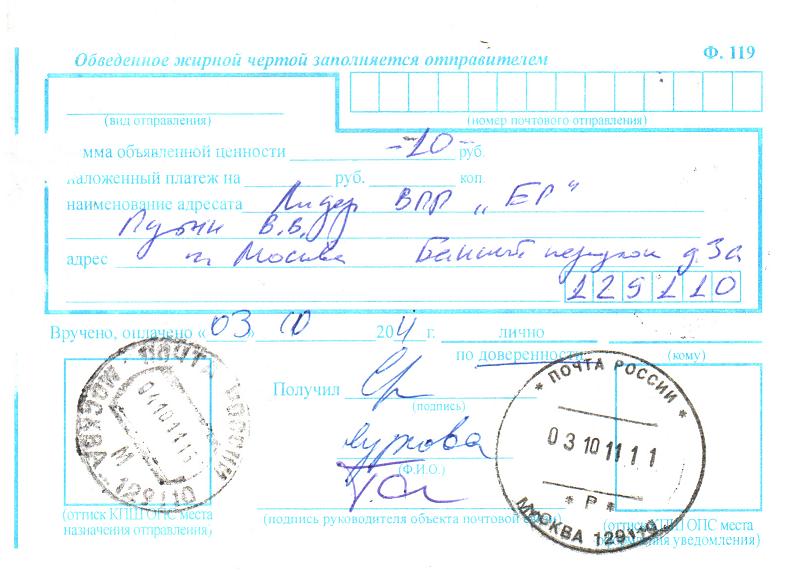 Обведенное жирной чертой заполняется отправителем
Ф. 119
(вид отправления)
(номер почтового отправления)
мма объявленной ценности -10- руб.
наложенный платеж на руб. коп.
наименование адресата Лидер ВПП „ЕР“
Путин В.В.
адрес г. Москва Банный переулок д. 3а
129110
Вручено, оплачено «03» 10 2011 г. лично
по доверенности
(кому)
Получил
(подпись)
Суркова
(Ф.И.О.)
(подпись руководителя объекта почтовой
(оттиск КПШ ОПС места
назначения отправления)
(оттиск КПШ ОПС места
уведомления)
ПОЧТА РОССИИ
МОСКВА
М
129110
* ПОЧТА РОССИИ *
03101111
* Р *
МОСКВА 129110